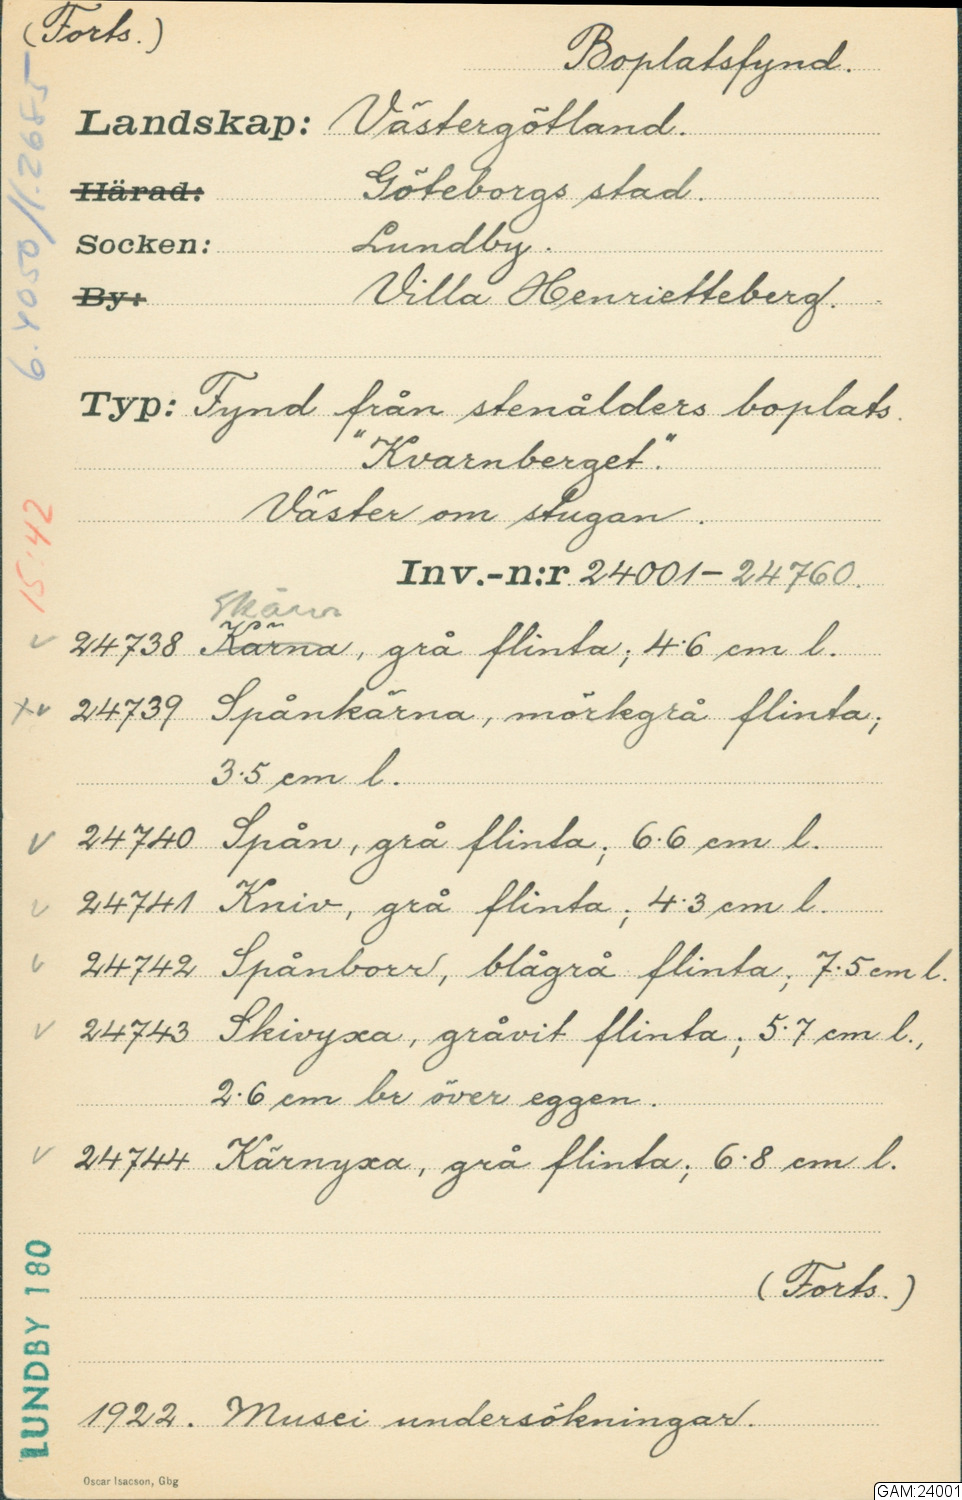 (Forts.)
Boplatsfynd.
Landskap: Västergötland.
Härad: Göteborgs stad.
Socken: Lundby.
By: Villa Henrietteberg.
Typ: Fynd från stenålders boplats.
"Kvarnberget".
Väster om stugan.
Inv.-n:r 24001-24760.
Skärva
24738 Kärna, grå flinta; 4·6 cm l.
24739 Spånkärna, mörkgrå flinta;
3·5 cm l.
24740 Spån, grå flinta; 6·6 cm l.
24741 Kniv, grå flinta; 4·3 cm l.
24742 Spånborr, blågrå flinta; 7·5 cm l.
24743 Skivyxa, gråvit flinta; 5·7 cm l.,
2·6 cm br över eggen.
24744 Kärnyxa, grå flinta; 6·8 cm l.
(Forts.)
1922. Musei undersökningar.
Oscar Isacson, Gbg
15:42
LUNDBY 180
GAM:24001